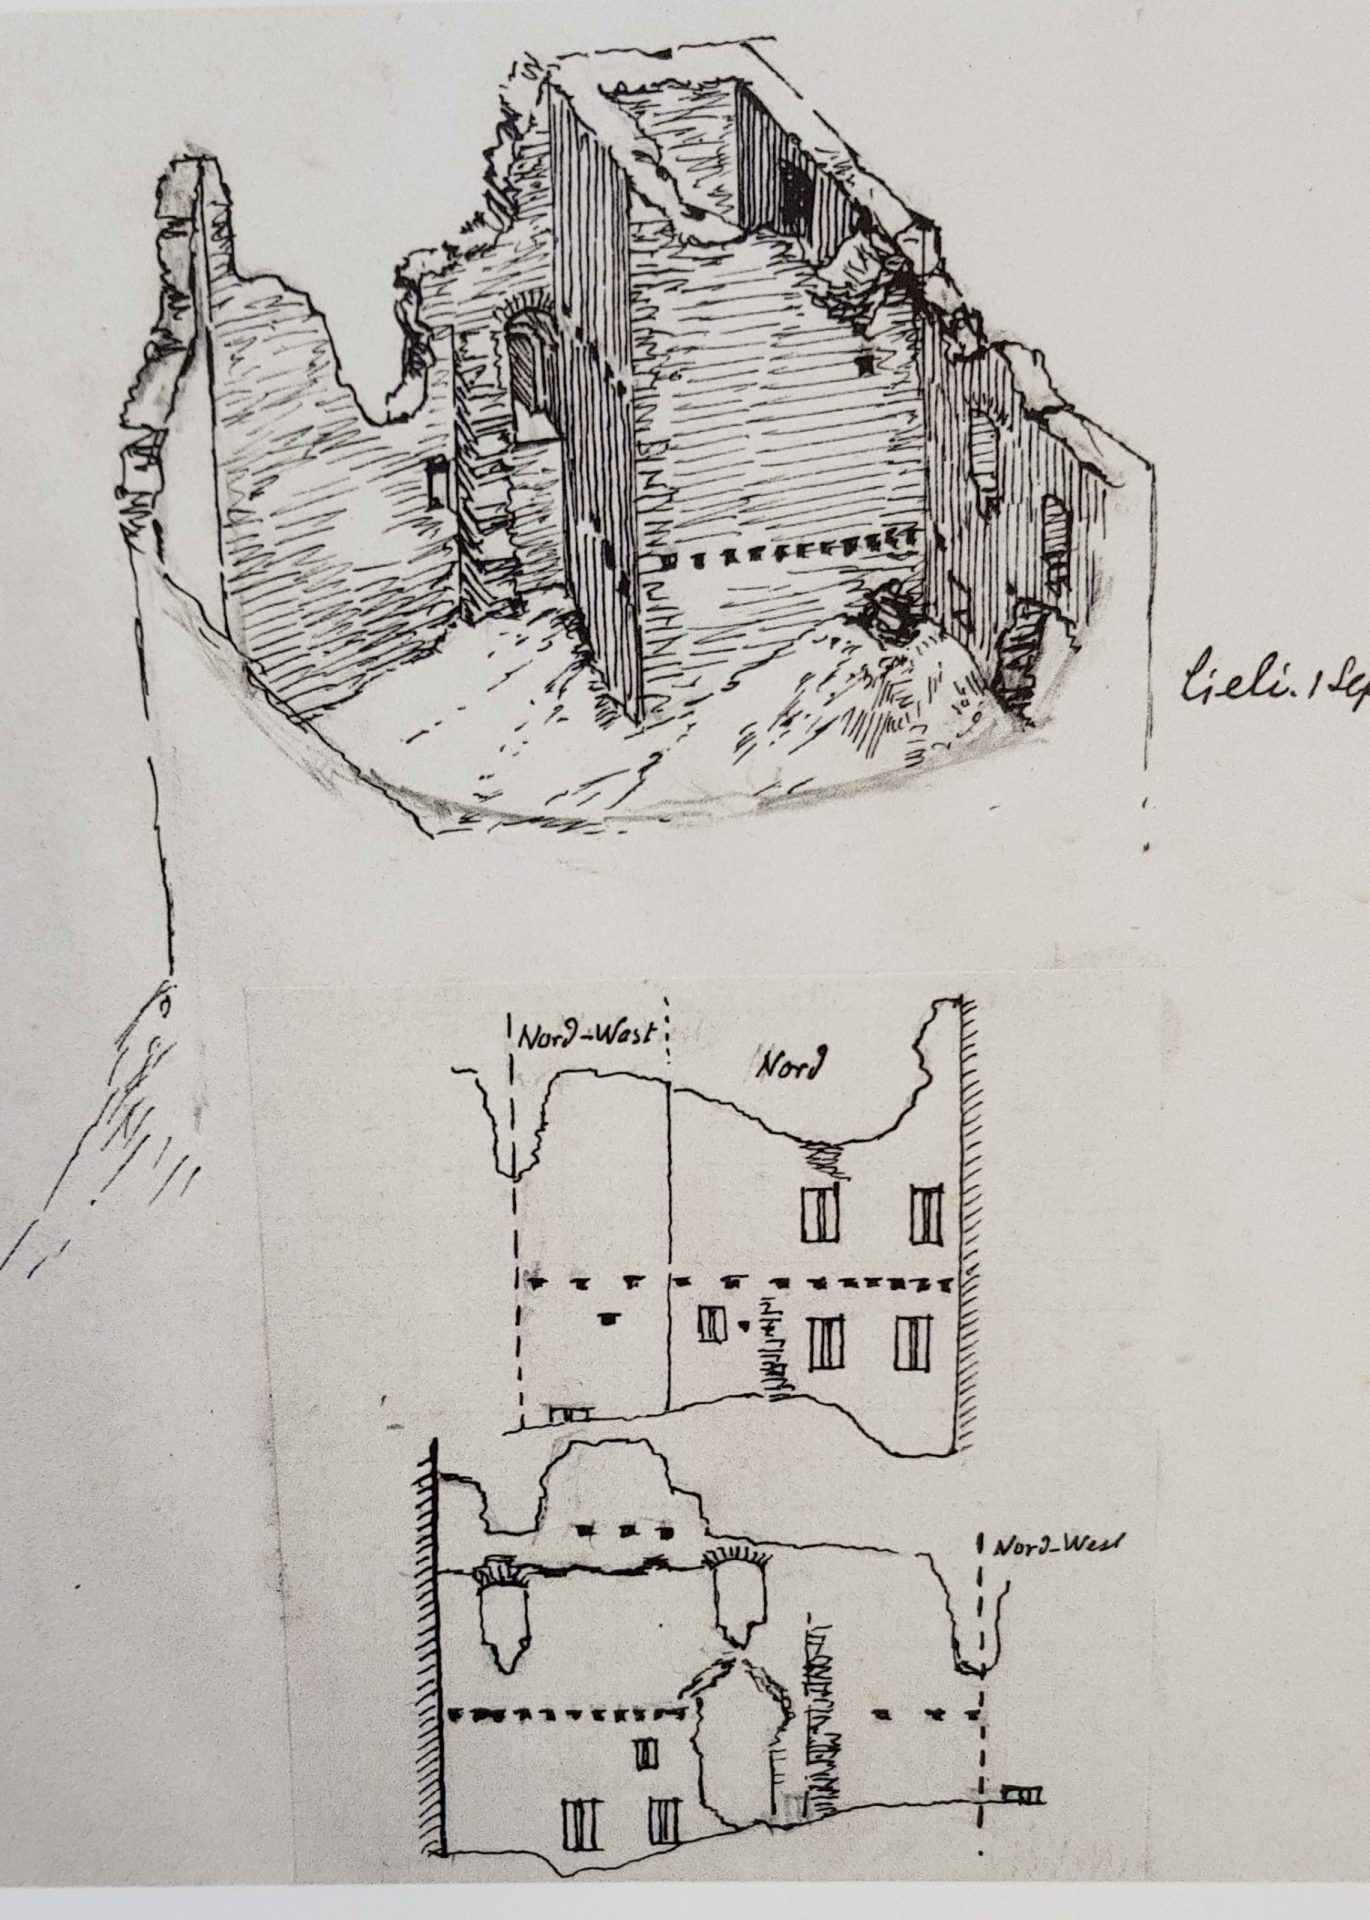 Lieli. 1 Sep
Nord-West
Nord
Nord-West